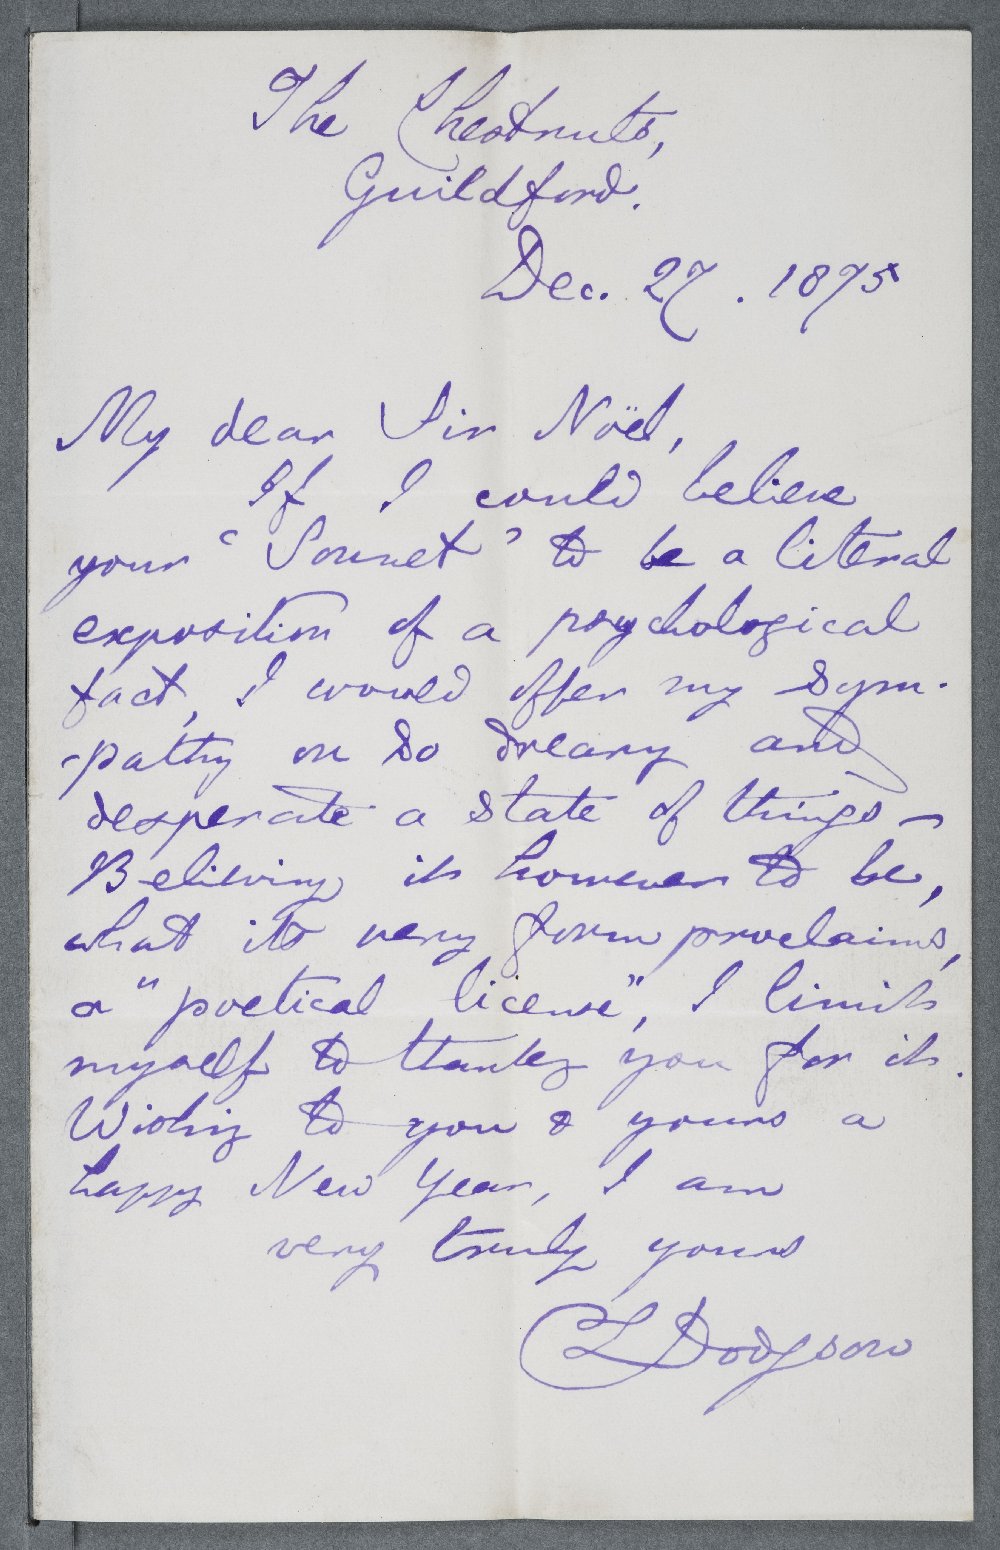 The Chestnuts,
Guildford.
Dec. 27. 1875
My dear Sir Noël,
If I could believe
your 'Sonnet' to be a literal
exposition of a psychological
fact, I would offer my sym-
-pathy on so dreary and
desperate a state of things –
Believing it however to be,
what its very form proclaims,
a "poetical license", I limit
myself to thanking you for it.
Wishing to you & yours a
happy New Year, I am
very truly yours
C L Dodgson